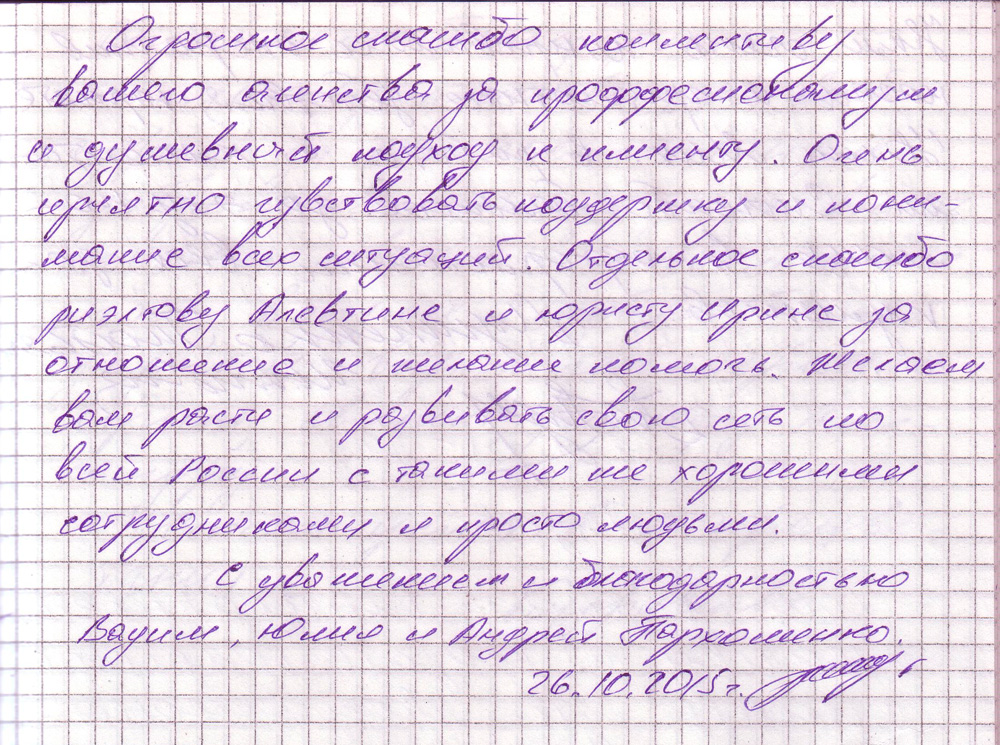 Огромное спасибо коллективу
вашего агенства за проффесионализм
и душевный подход к клиенту. Очень
приятно чувствовать поддержку и пони-
мание всех ситуаций. Отдельное спасибо
риэлтору Алевтине и юристу Ирине за
отношение и желание помочь. Желаем
вам расти и развивать свою сеть по
всей России с такими же хорошими
сотрудниками и просто людьми.
С уважением и благодарностью
Вадим, Юлия и Андрей Пархоменко.
26.10.2015г.